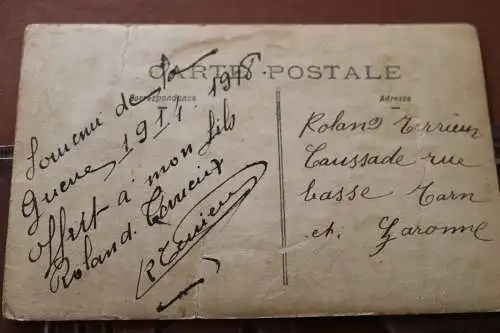 CARTE POSTALE
Correspondance
Souvenir de la
Guerre 1914. 1918
offert à mon fils
Roland. Terrieux
R Terrieux
Adresse
Roland Terrieux
Caussade rue
basse Tarn
et. Garonne